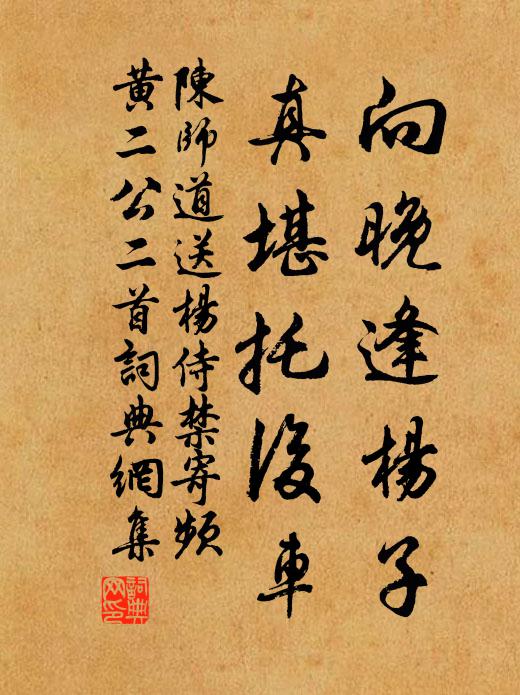 向晚逢楊子
真堪托後車
陳師道送楊侍禁寄頻
黃二公二首詞典網集
詞典网印